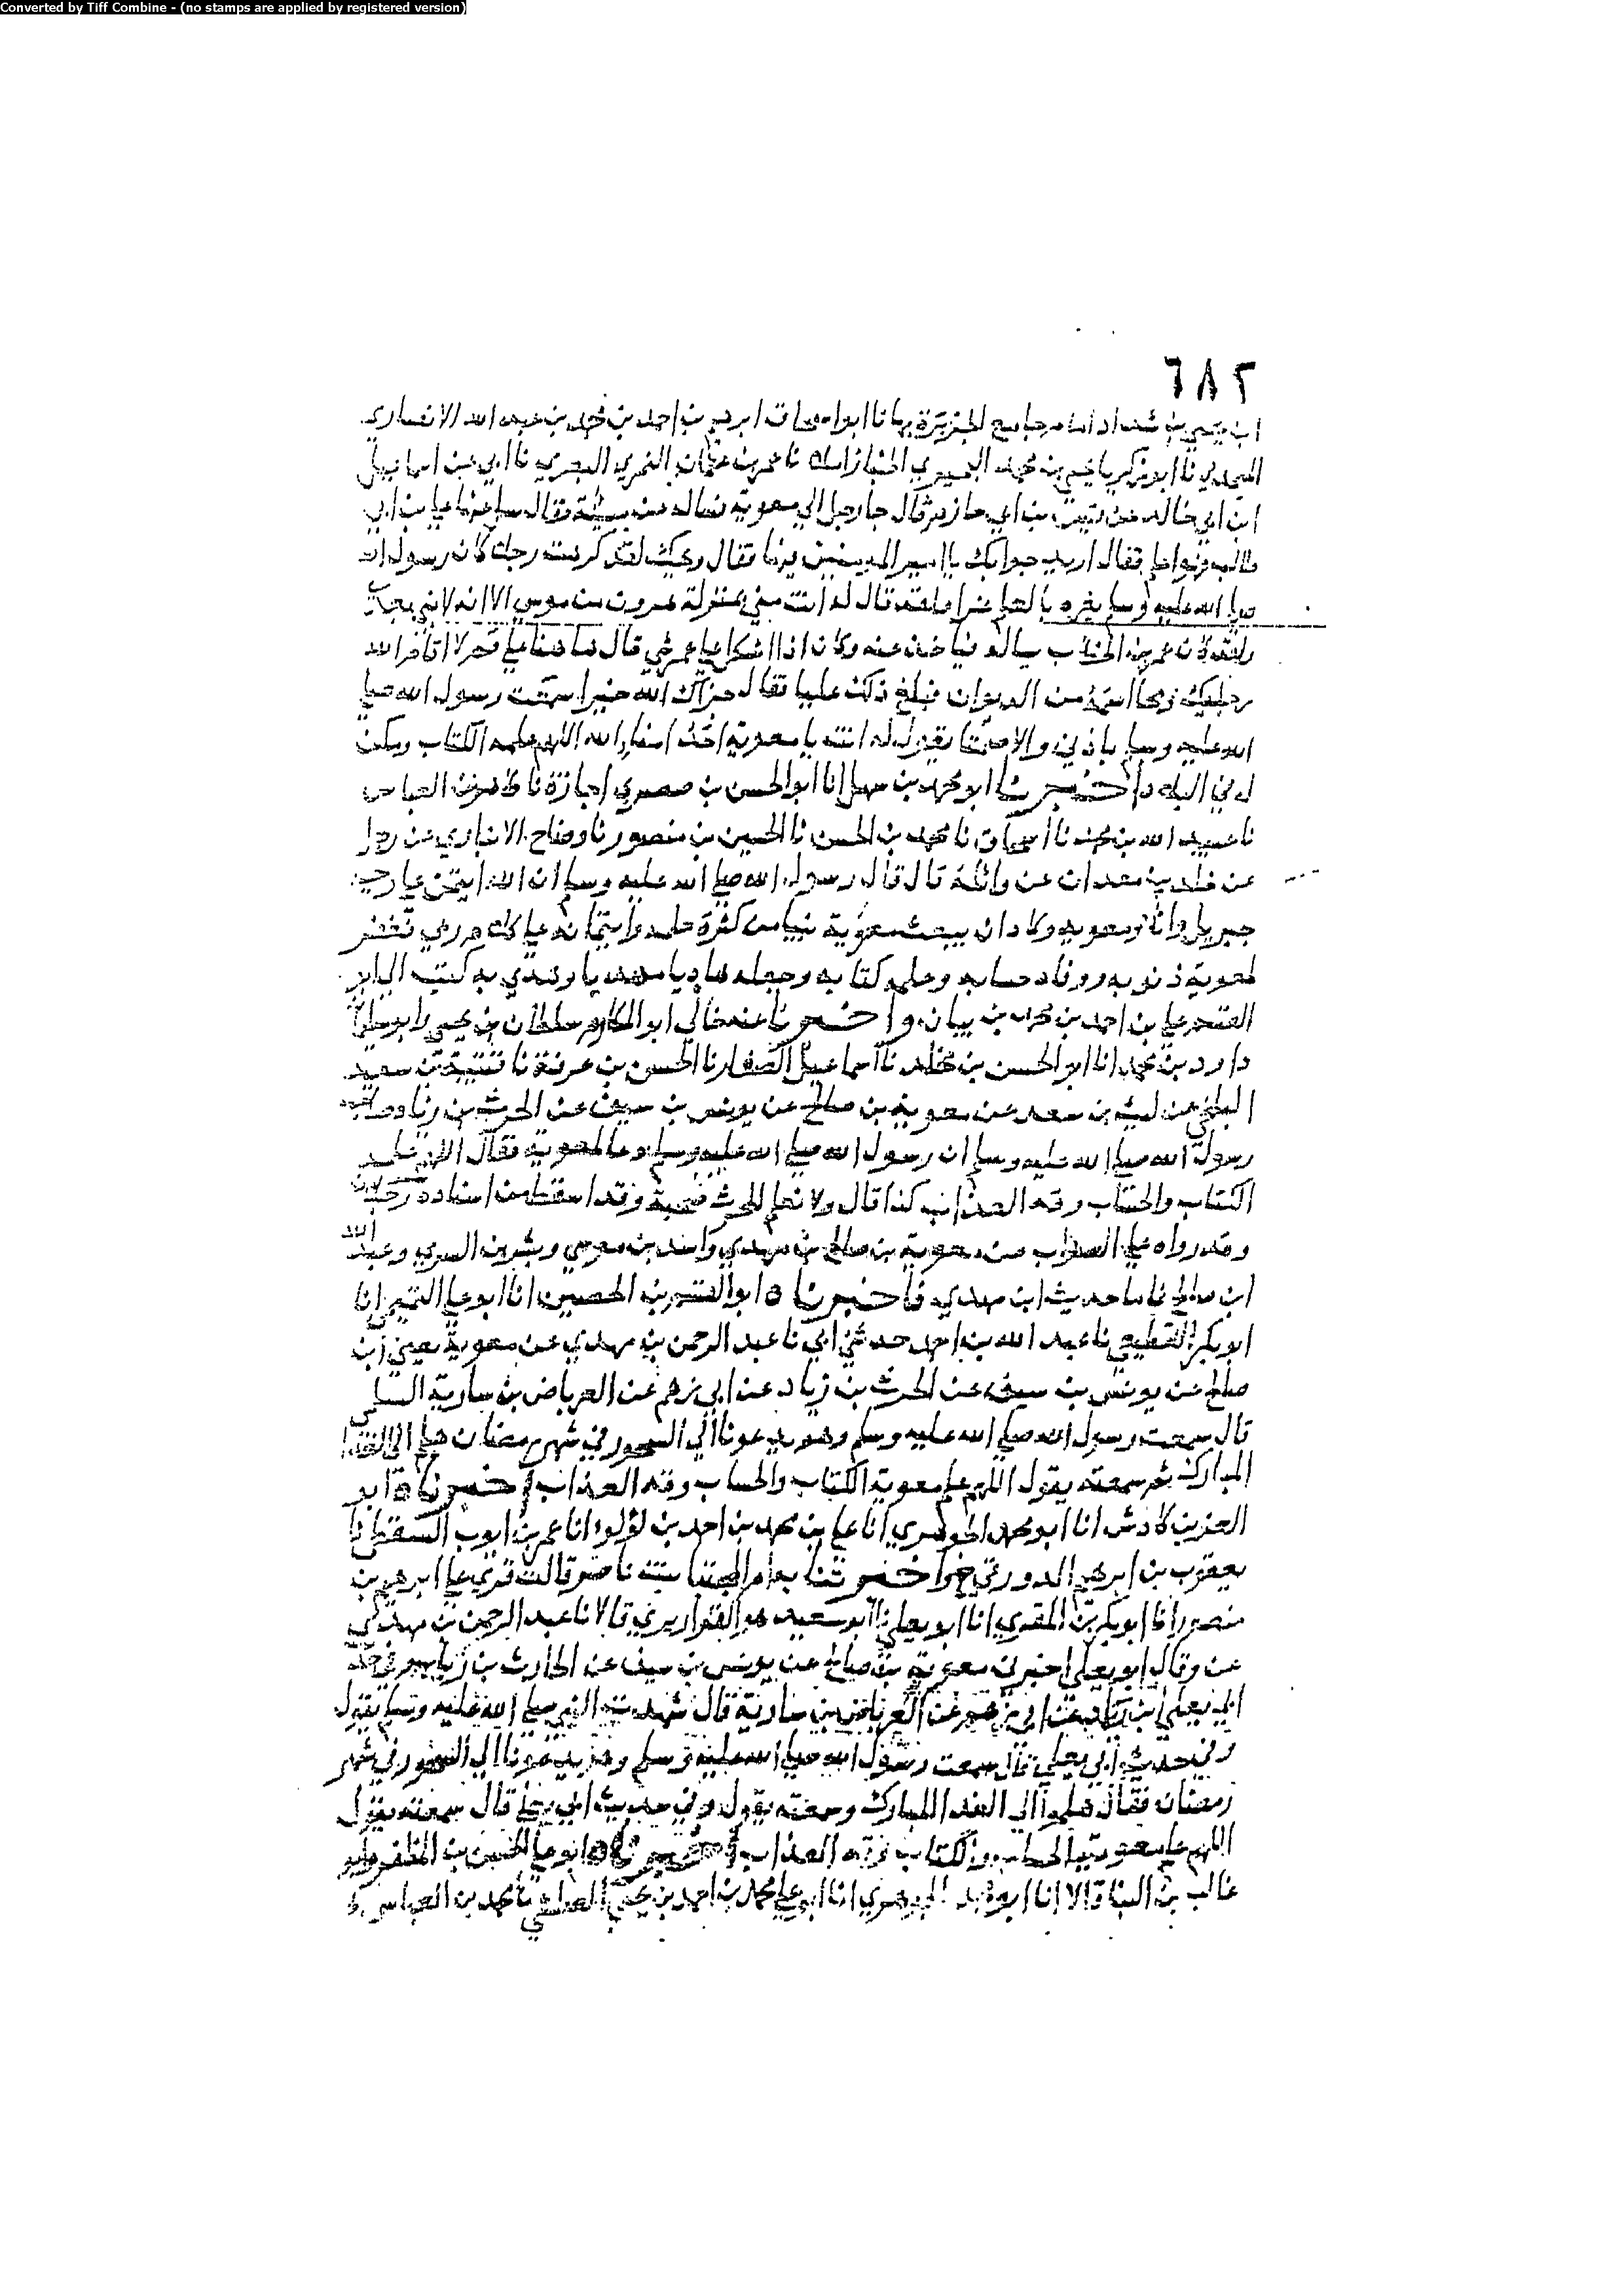 Converted by Tiff Combine - (no stamps are applied by registered version)
٦٨٢
ابن يحيى بن شداد امام جامع الجزيرة بها نا ابو اسحاق ابرهيم بن احمد بن محمد بن عبد الله الانصاري
نا ابو زكريا بن محمد نا عمر بن عثمان النمري البصري نا ابي عن اسماعيل
ابن ابي خالد عن قيس بن ابي حازم قال جا رجل الى معوية فساله عن مسئلة فقال سل عنها علي بن ابي
طالب فهو اعلم فقال اريد جوابك يا امير المومنين فيها فقال ويحك لقد كرهت رجلا كان رسول الله
صلى الله عليه وسلم يغره بالعلم غرا ولقد قال له انت مني بمنزلة هرون من موسى الا انه لا نبي بعدي
ولقد كان عمر بن الخطاب يساله وياخذ عنه وكان اذا اشكل على عمر شي قال هاهنا علي قم لا اقام الله
رجليك ومحا اسمه من الديوان فبلغ ذلك عليا فقال جزاك الله خيرا سمعت رسول الله صلى
الله عليه وسلم باذني والا صمتا يقول له انت يا معوية احد امناء الله اللهم علمه الكتاب ومكن
له في البلاد اخبرنا ابو محمد بن سهل انا ابو الحسن بن صصرى اجازة نا العباس
نا عبيد الله بن محمد نا اسحاق نا محمد بن الحسن نا الحسين بن منصور نا وضاح الانباري عن رجل
عن خلد بن معدان عن واثلة قال قال رسول الله صلى الله عليه وسلم ان الله ايتمن على وحيه
جبريل وانا ومعوية وكاد ان يبعث معوية نبيا من كثرة حلمه وايتمانه على كلام ربي فغفر
لمعوية ذنوبه ووفاه حسابه وعلمه كتابه وجعله هاديا مهديا وهدي به كتب الي ابو
الفتح علي بن احمد بن محمد بن بيان واخبرنا عنه خالي ابو المكارم سلطان بن يحيى وابو سليمن
داود بن محمد انا ابو الحسن بن مخلد نا اسماعيل الصفار نا الحسن بن عرفة نا قتيبة بن سعيد
البلخي عن ليث بن سعد عن معوية بن صالح عن يونس بن سيف عن الحرث بن زياد صاحب
رسول الله صلى الله عليه وسلم ان رسول الله صلى الله عليه وسلم دعا لمعوية فقال اللهم علمه
الكتاب والحساب وقه العذاب كذا قال ولا نعلم للحرث صحبة وقد اسقط من اسناده رجلان
وقد رواه على الصواب عن معوية بن صالح بن مهدي واسد بن موسى وبشر بن السري وعبد الله
ابن صالح فاما حديث ابن مهدي فاخبرناه ابو القسم بن الحصين انا ابو علي التميمي انا
ابو بكر القطيعي نا عبد الله بن احمد حدثني ابي نا عبد الرحمن بن مهدي عن معوية يعني ابن
صالح عن يونس بن سيف عن الحرث بن زياد عن ابي رهم عن العرباض بن سارية السلمي
قال سمعت رسول الله صلى الله عليه وسلم وهو يدعونا الى السحور في شهر رمضان هلم الى الغذاء
المبارك ثم سمعته يقول اللهم علم معوية الكتاب والحساب وقه العذاب اخبرناه ابو
العز بن كادش انا ابو محمد الجوهري انا علي بن محمد بن احمد بن لؤلؤ انا عمر بن ايوب السقطي نا
يعقوب بن ابرهيم الدورقي ح واخبرتنا به ام المجتبا بنت ناصر قالت قرئ على ابرهيم بن
منصور انا ابو بكر بن المقري انا ابو يعلى نا ابو سعيد هو القواريري قالا نا عبد الرحمن بن مهدي
عن وقال ابو يعلى اخبرني معوية بن صالح عن يونس بن سيف عن الحارث بن زياد
ابي يعلى ابن زياد عن ابي رهم عن العرباض بن سارية قال شهدت النبي صلى الله عليه وسلم يقول
وفي حديث ابي يعلى قال سمعت رسول الله صلى الله عليه وسلم وهو يدعونا الى السحور في شهر
رمضان فقال هلموا الى الغداء المبارك وسمعته يقول وفي حديث ابي يعلى قال سمعته يقول
اللهم علم معوية الحساب والكتاب وقه العذاب اخبرناه ابو علي الحسن بن المظفر وابو
غالب بن البنا قالا انا ابو محمد الجوهري انا ابو علي محمد بن احمد بن يحيى العطشي نا محمد بن العباس